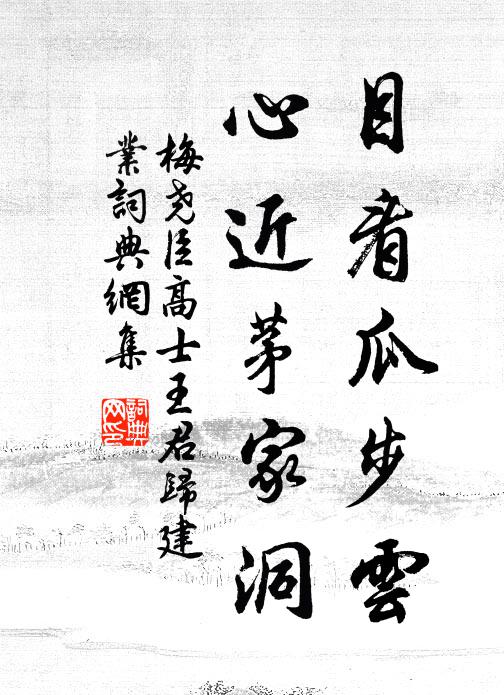 目看瓜步雲
心近茅家洞
梅堯臣高士王君歸建
業詞典網集
詞典
网印